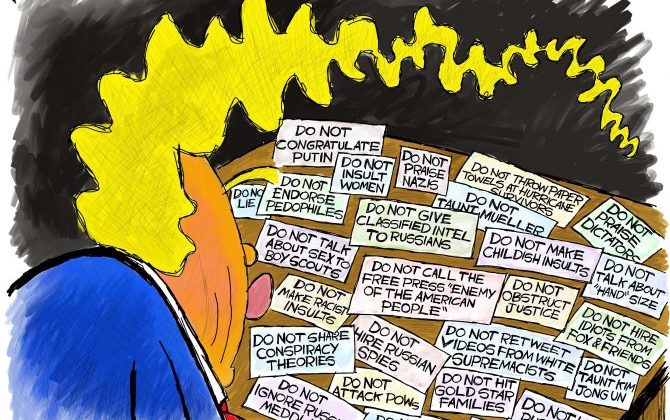 DO NOT
CONGRATULATE
PUTIN
DO NOT
INSULT
WOMEN
DO NOT
PRAISE
NAZIS
DO NOT THROW PAPER
TOWELS AT HURRICANE
SURVIVORS
DO NO
LIE
DO NOT
ENDORSE
PEDOPHILES
DO NOT GIVE
CLASSIFIED INTEL
TO RUSSIANS
DO NOT
TAUNT MUELLER
DO NOT
PRAISE
DICTATORS
DO NOT TALK
ABOUT SEX TO
BOY SCOUTS
DO NOT MAKE
CHILDISH INSULTS
DO NOT
TALK ABOUT
"HAND" SIZE
DO NOT
MAKE RACIST
INSULTS
DO NOT CALL THE
FREE PRESS "ENEMY
OF THE AMERICAN
PEOPLE"
DO NOT
OBSTRUCT
JUSTICE
DO NOT HIRE
IDIOTS FROM
FOX & FRIENDS
DO NOT SHARE
CONSPIRACY
THEORIES
DO NOT
HIRE RUSSIAN
SPIES
DO NOT RETWEET
VIDEOS FROM WHITE
SUPREMACISTS
DO NOT
TAUNT KIM
JONG UN
DO NOT
IGNORE RUSS
MEDD
DO NOT
ATTACK POWs
DO NOT HIT
GOLD STAR
FAMILIES
DO NOT